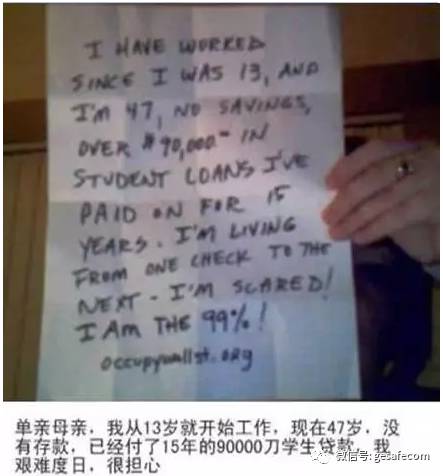 I HAVE WORKED
SINCE I WAS 13, AND
I'M 47, NO SAVINGS,
OVER $90,000.⁰⁰ IN
STUDENT LOANS I'VE
PAID ON FOR 15
YEARS. I'M LIVING
FROM ONE CHECK TO THE
NEXT - I'M SCARED!
I AM THE 99%!
occupywallst.org
单亲母亲，我从13岁就开始工作，现在47岁，没
有存款，已经付了15年的90000刀学生贷款，我
艰难度日，很担心
微信号: gesafecom